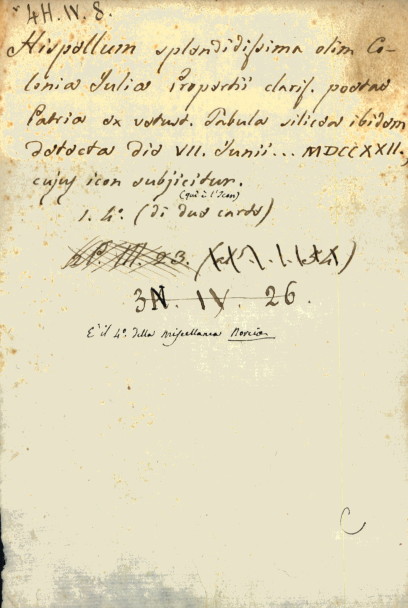 4H.IV.8.
Hispellum splendidissima olim Co-
lonia Julia Propertii clariss. poetae
Patria ex vetust. Tabula silicea ibidem
detecta die VII. Junii... MDCCXXII.,
cujus icon subjicitur.
(qui è l'Icon)
1. 4.º (di due carte)
III. 23.
3N. IV. 26.
È il 4.º della Miscellanea Borcia
C